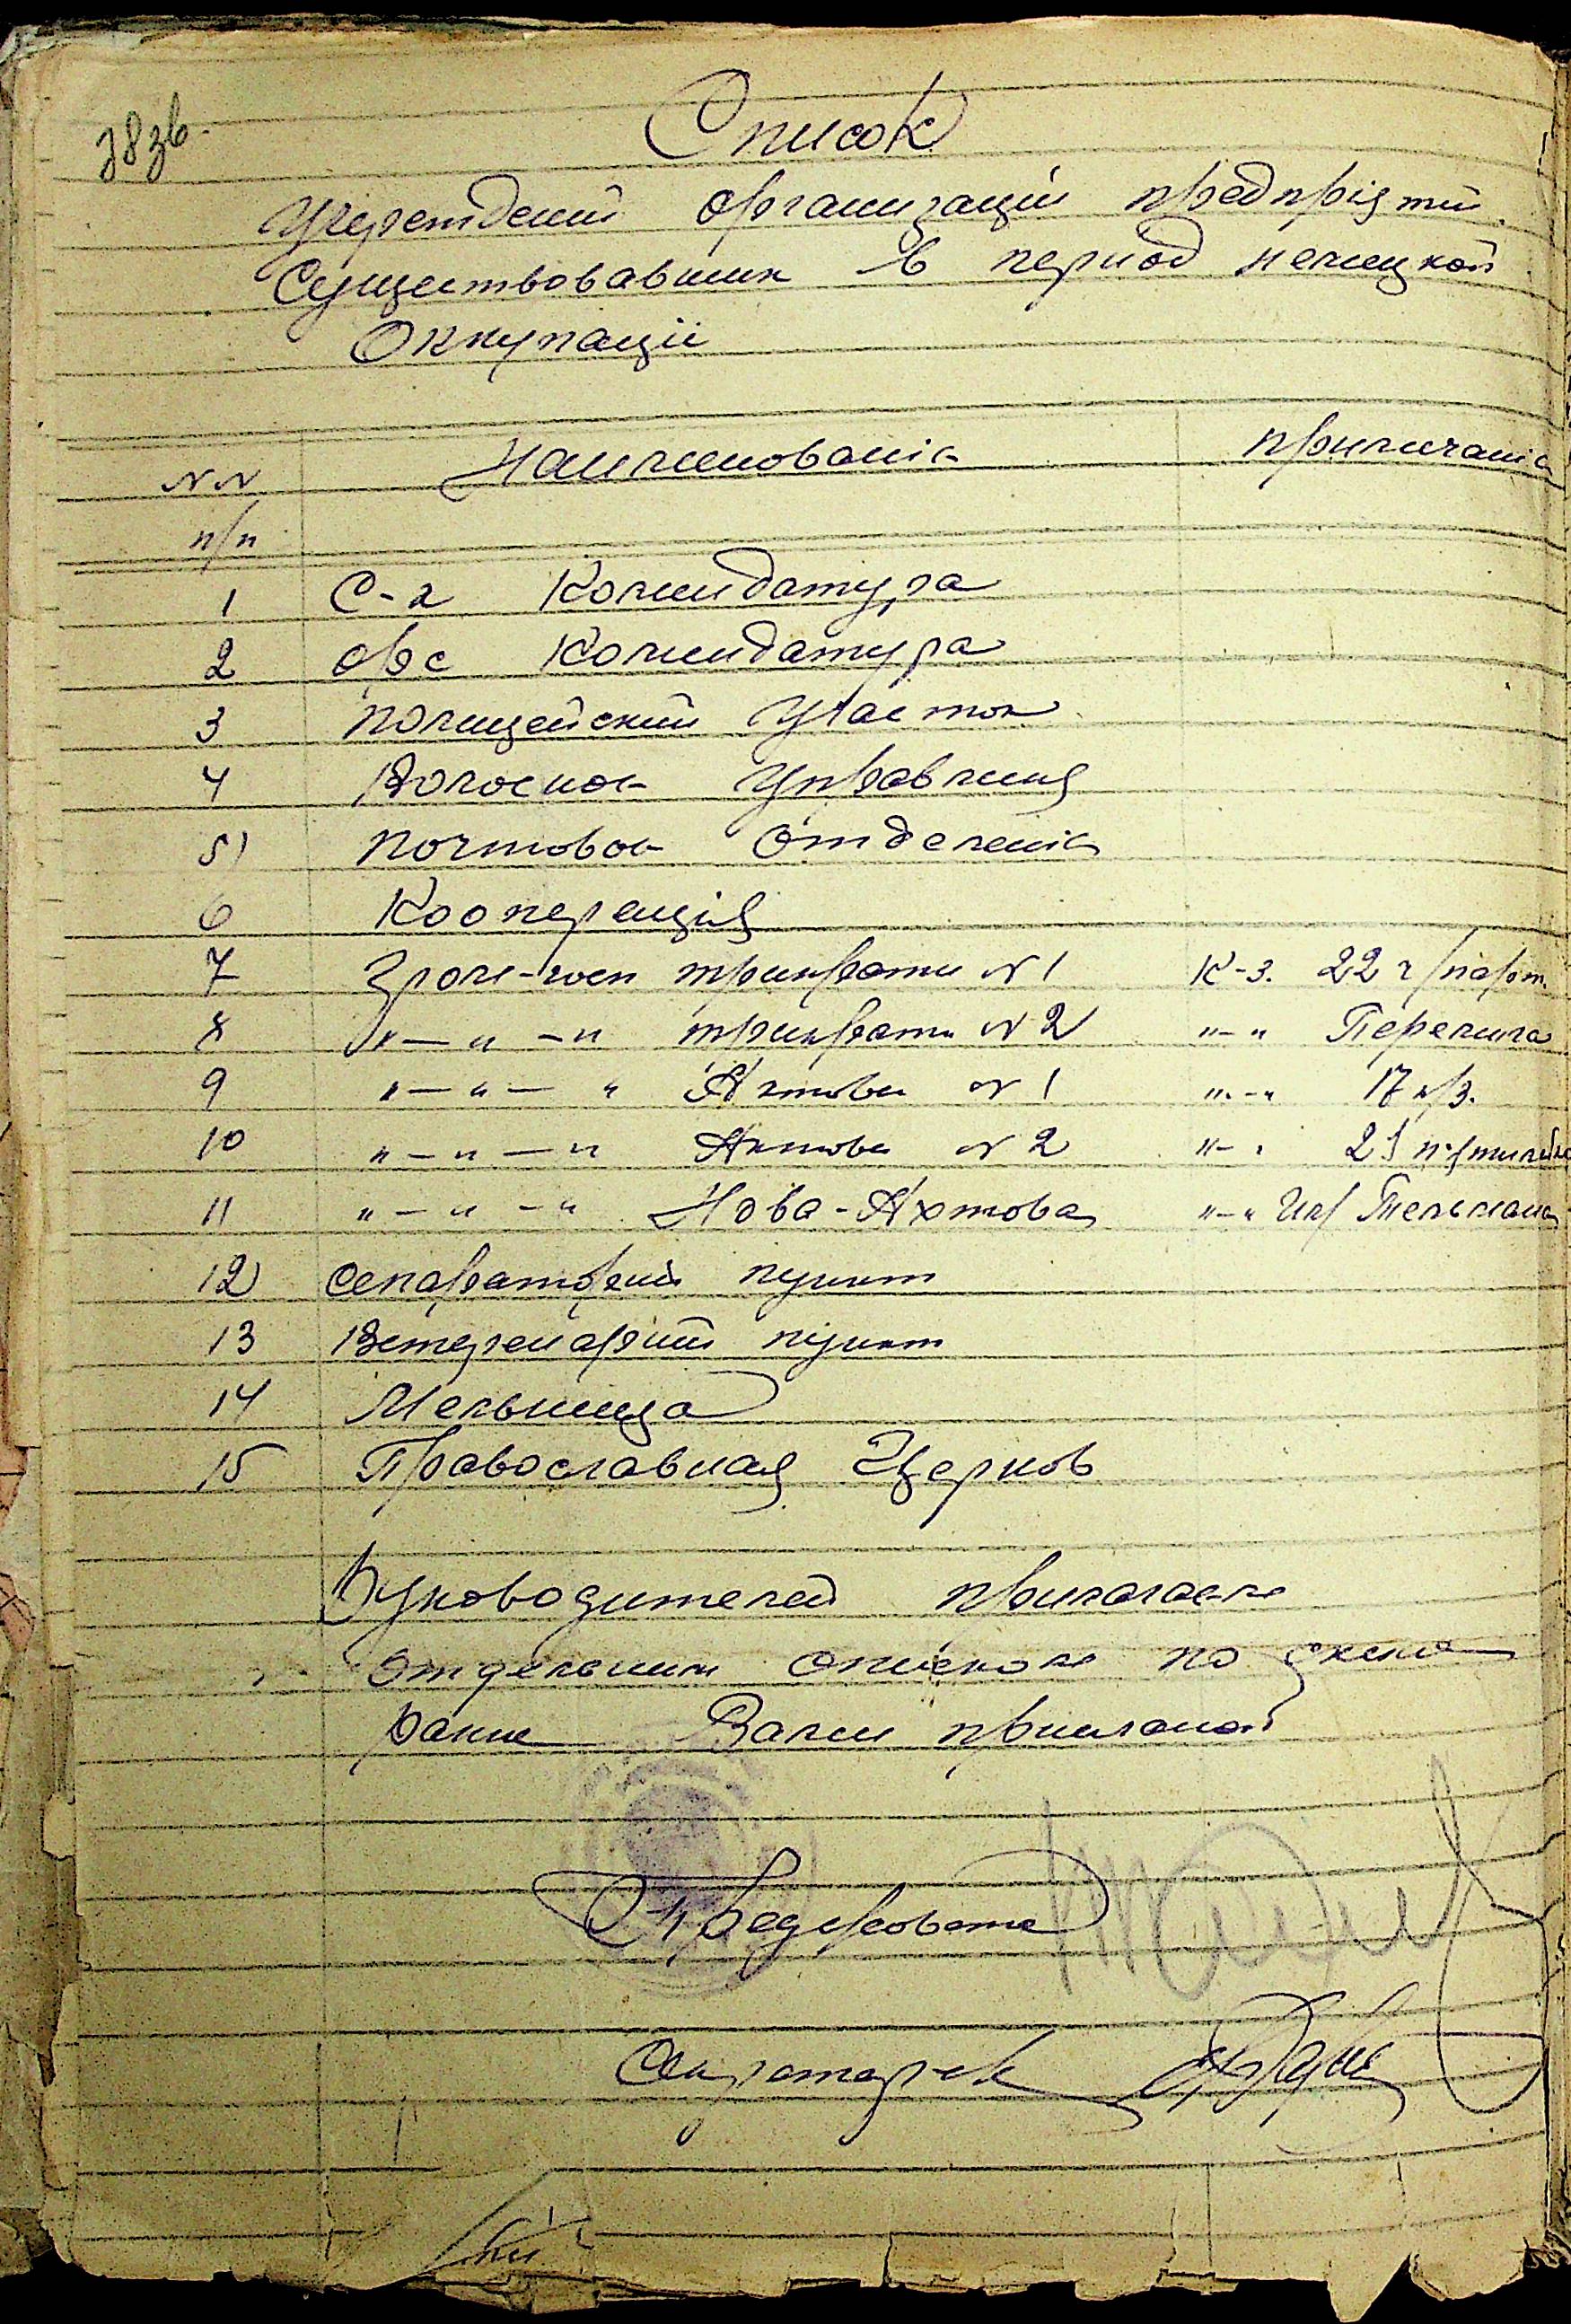 38зв.
Список
Учереждений организаций предпріятий
Существовавших в период немецкой
Оккупаціи
№№ Наименованіе примечаніе
п/п
1 С-х Комендатура
2 Орс Комендатура
3 полицейский Участок
4 Волосное Управления
5) почтовое Отделеніе
6 Кооперація
7 Гром-хоз трикраты №1 К-з. 22 г/парт.
8 "—"—" трикраты №2 "—" Перемига
9 "—"—" Яхтовы №1 "—" 17 п/з.
10 "—"—" Яхтовы №2 "—" 21
11 "—"—" Нова-Яхтова "—" Им/ Тельмана
12 Сепараторий пункт
13 Ветеренарий пункт
14 Мельница
15 Православная Церков
Руководителей прилагаем
отдельним списком по
ранее Вами присланой
Секретарь